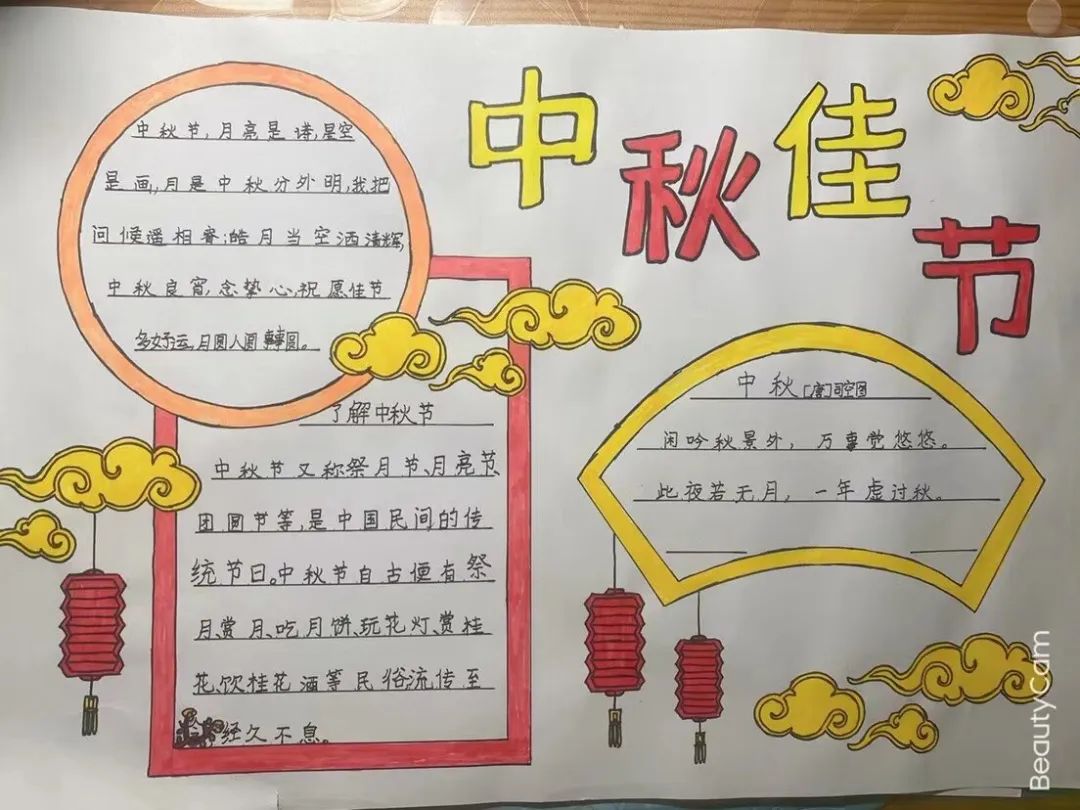 中秋佳节
中秋节,月亮是诗,星空
是画,月是中秋分外明,我把
问候遥相寄;皓月当空洒清辉,
中秋良宵念挚心,祝愿佳节
多好运,月圆人圆事事圆。
了解中秋节
中秋节又称祭月节、月亮节、
团圆节等,是中国民间的传
统节日。中秋节自古便有祭
月、赏月、吃月饼、玩花灯、赏桂
花、饮桂花酒等民俗,流传至
经久不息。
中秋[唐]司空图
闲吟秋景外,万事觉悠悠。
此夜若无月,一年虚过秋。
BeautyCam